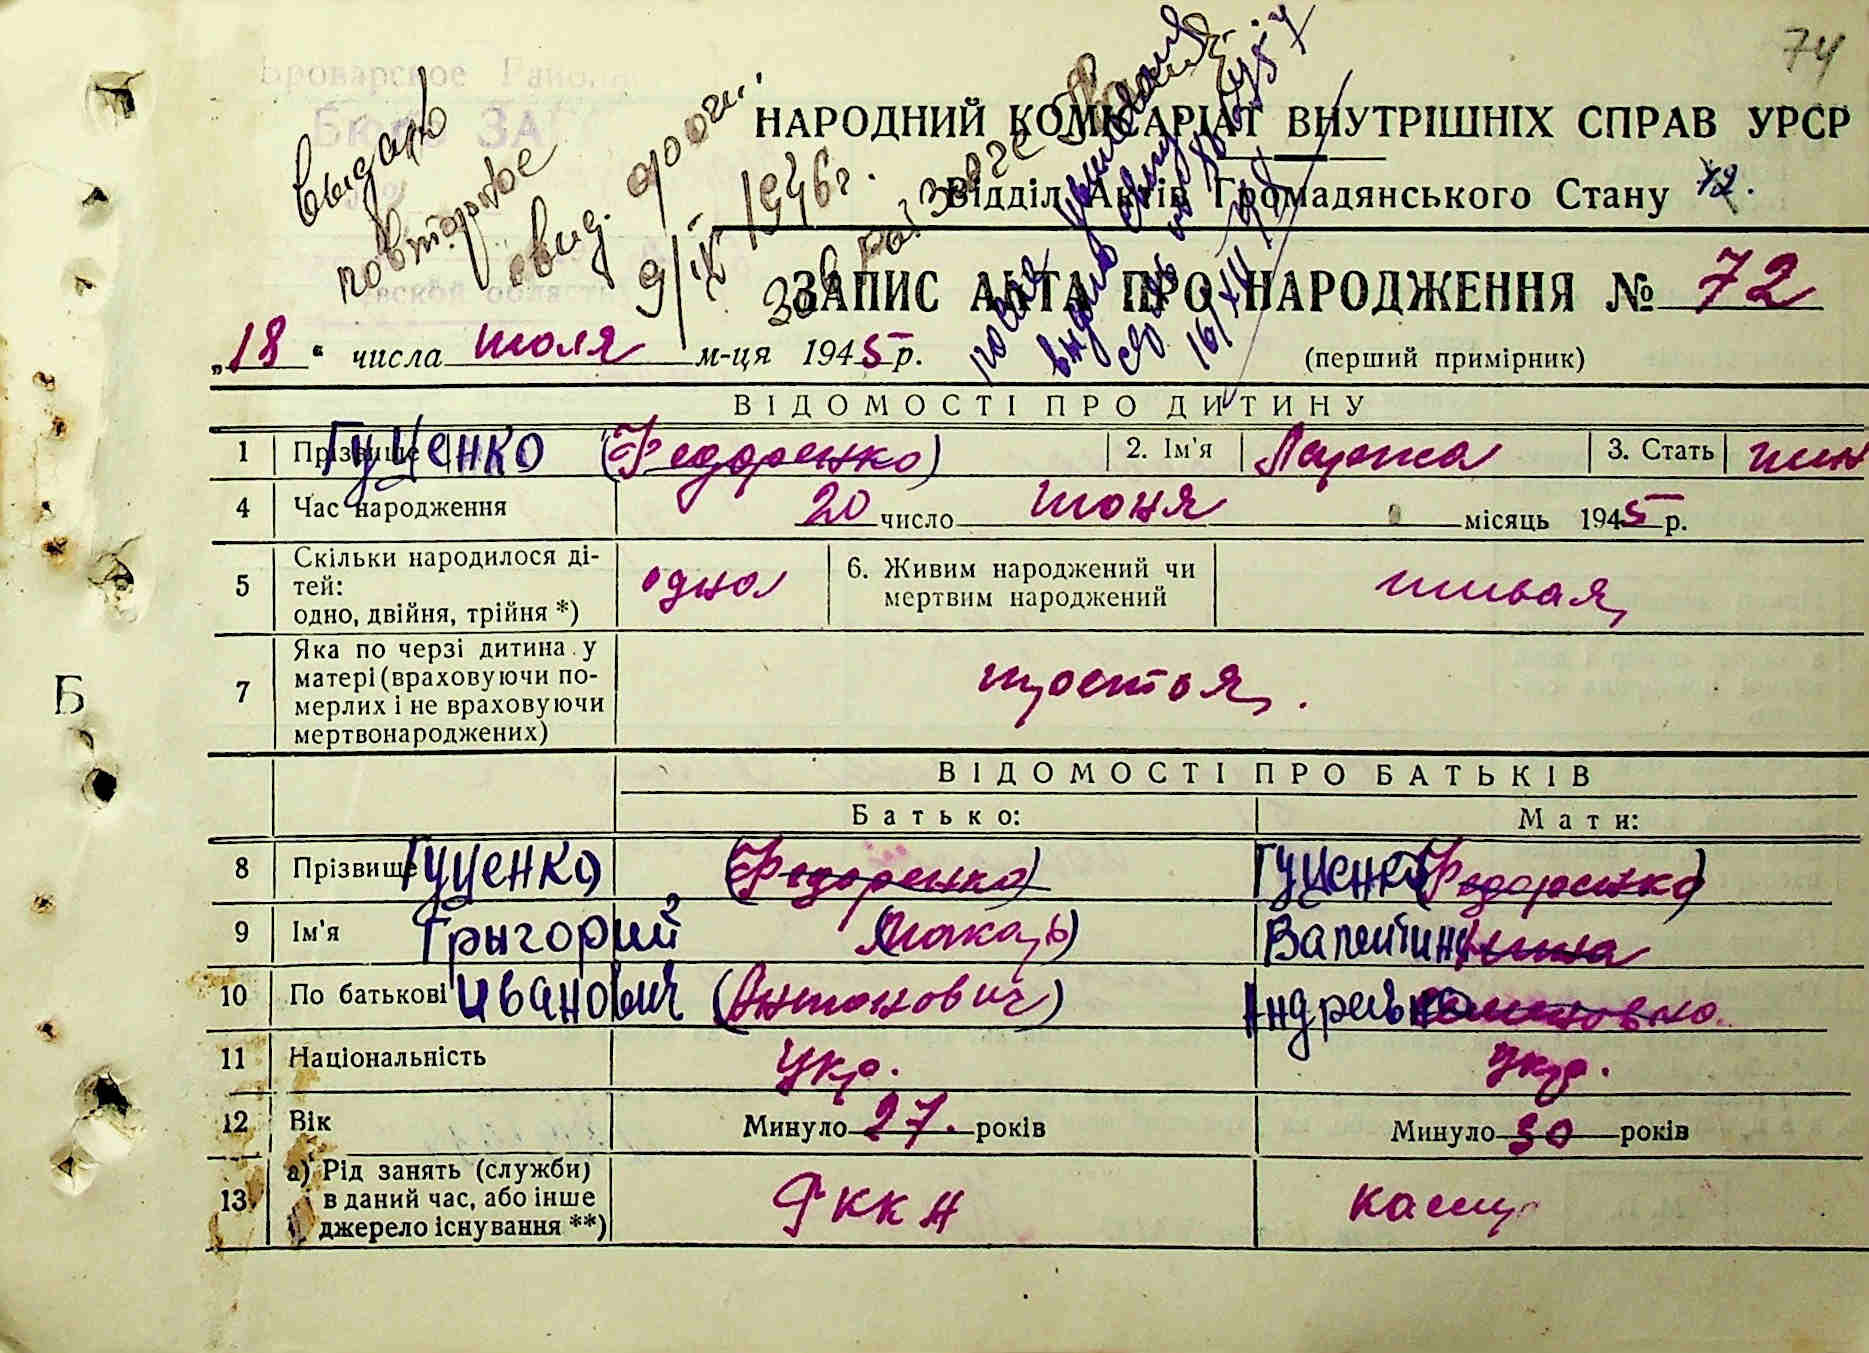 74
Броварское
Бюро ЗАГС
выдано
повторное
свид.
9/IV 1946 г.
НАРОДНИЙ КОМІСАРІАТ ВНУТРІШНІХ СПРАВ УРСР
Відділ Актів Громадянського Стану 72.
ЗАПИС АКТА ПРО НАРОДЖЕННЯ № 72
„18“ числа июля м-ця 1945 р.
(перший примірник)
ВІДОМОСТІ ПРО ДИТИНУ
1 Прізвище Гуценко (Федоренко) 2. Ім'я 3. Стать жен
4 Час народження 20 число июня місяць 1945 р.
5 Скільки народилося ді-
тей:
одно, двійня, трійня *) одна 6. Живим народжений чи
мертвим народжений живая
Б
7 Яка по черзі дитина у
матері (враховуючи по-
мерлих і не враховуючи
мертвонароджених) третья.
ВІДОМОСТІ ПРО БАТЬКІВ
Батько: Мати:
8 Прізвище Гуценко (Федоренко) Гуценко (Федоренко)
9 Ім'я Григорий (Макар) Валентина Нина
10 По батькові Иванович (Антонович) Андреевна
11 Національність укр. укр.
12 Вік Минуло 27. років Минуло 30 років
13 а) Рід занять (служби)
в даний час, або інше
джерело існування **) РККА кассир